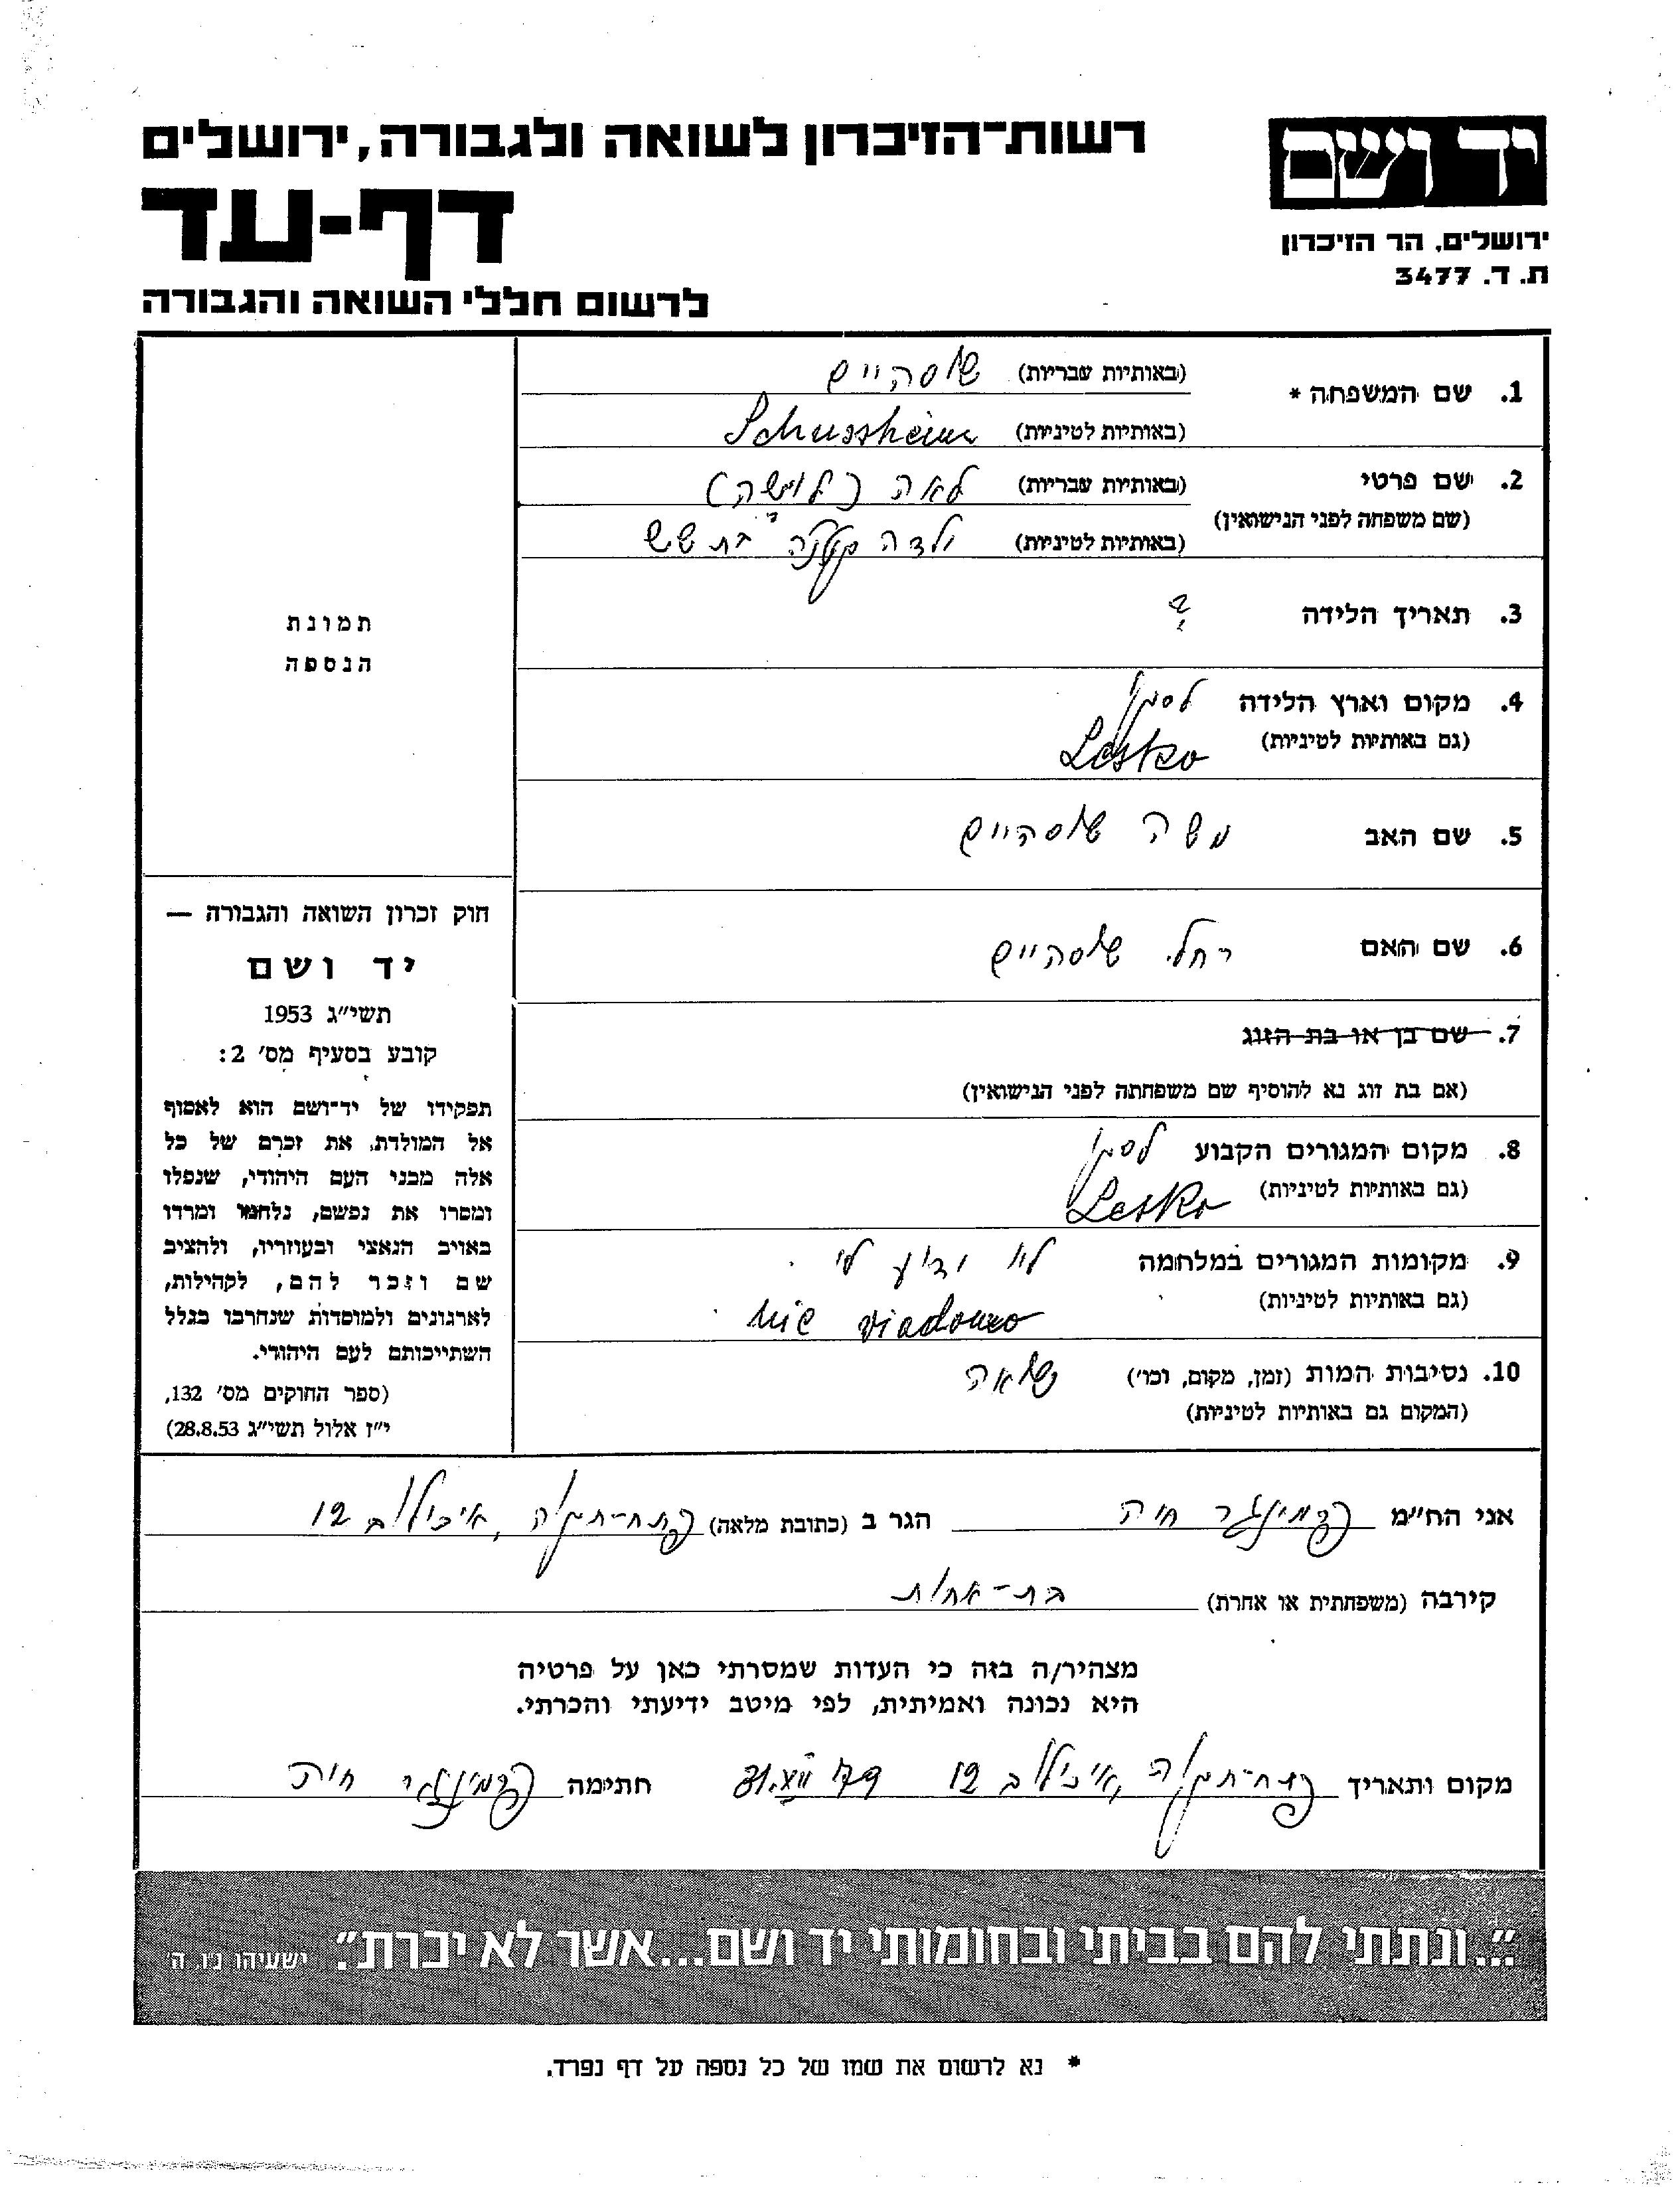 יד ושם
ירושלים, הר הזיכרון
ת. ד. 3477
רשות-הזיכרון לשואה ולגבורה, ירושלים
דף-עד
לרשום חללי השואה והגבורה
1. שם המשפחה *
(באותיות עבריות) שוסהיים
(באותיות לטיניות) Schussheim
2. שם פרטי (באותיות עבריות) לאה (לוישה)
(שם משפחה לפני הנישואין)
(באותיות לטיניות) ילדה קטנה בת שש
3. תאריך הלידה ?
4. מקום וארץ הלידה לסקו
(גם באותיות לטיניות) Lesko
5. שם האב משה שוסהיים
6. שם האם רחל שוסהיים
7. שם בן או בת הזוג
(אם בת זוג נא להוסיף שם משפחתה לפני הנישואין)
8. מקום המגורים הקבוע לסקו
(גם באותיות לטיניות) Lesko
9. מקומות המגורים במלחמה לא ידוע לי.
(גם באותיות לטיניות) nie viadomo
10. נסיבות המות (זמן, מקום, וכו') בשואה
(המקום גם באותיות לטיניות)
תמונת
הנספה
חוק זכרון השואה והגבורה —
יד ושם
תשי"ג 1953
קובע בסעיף מס' 2:
תפקידו של יד-ושם הוא לאסוף
אל המולדת את זכרם של כל
אלה מבני העם היהודי, שנפלו
ומסרו את נפשם, נלחמו ומרדו
באויב הנאצי ובעוזריו, ולהציב
שם וזכר להם, לקהילות,
לארגונים ולמוסדות שנחרבו בגלל
השתייכותם לעם היהודי.
(ספר החוקים מס' 132,
י"ז אלול תשי"ג 28.8.53)
אני הח"מ פרמינגר חיה הגר ב (כתובת מלאה) פתח-תקוה, 12
קירבה (משפחתית או אחרת) בת-אחות
מצהיר/ה בזה כי העדות שמסרתי כאן על פרטיה
היא נכונה ואמיתית, לפי מיטב ידיעתי והכרתי.
מקום ותאריך פתח-תקוה, 12 חתימה פרמינגר חיה
"...ונתתי להם בביתי ובחומותי יד ושם...אשר לא יכרת". ישעיהו נ"ו, ה'
* נא לרשום את שמו של כל נספה על דף נפרד.